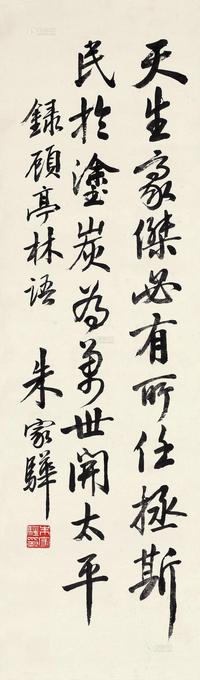 天生豪傑必有所任拯斯
民於塗炭為萬世開太平
録顧亭林語
朱家驊